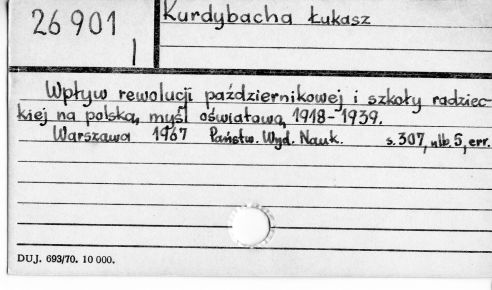 26 901
I
Kurdybacha Łukasz
Wpływ rewolucji październikowej i szkoły radziec-
kiej na polską myśl oświatową 1918-1939.
Warszawa 1967 Państw. Wyd. Nauk. s. 307, nlb. 5, err.
DUJ. 693/70. 10 000.